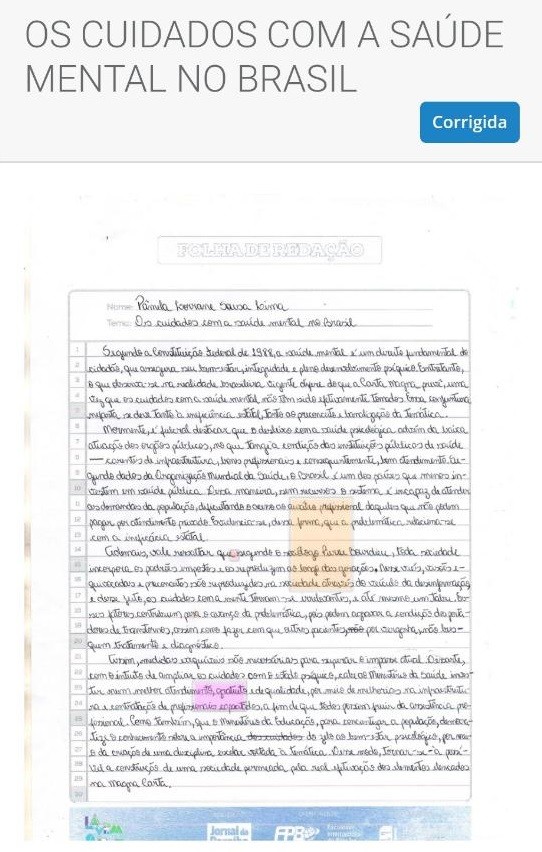 OS CUIDADOS COM A SAÚDE
MENTAL NO BRASIL
Corrigida
FOLHA DE REDAÇÃO
Nome: Pâmela Lorrane Sousa Lima
Tema: Os cuidados com a saúde mental no Brasil
1 Segundo a Constituição Federal de 1988, a saúde mental é um direito fundamental do
2 cidadão, que assegura seu bem-estar, integridade e pleno desenvolvimento psíquico. Entretanto,
3 o que observa-se na realidade brasileira vigente difere do que a Carta Magna prevê, uma
4 vez que os cuidados com a saúde mental não têm sido efetivamente tomados. Essa conjuntura
5 nefasta se deve tanto à ineficiência estatal, tanto ao preconceito e banalização da temática.
6 Mormente, é fulcral destacar que o desleixo com a saúde psicológica advém da baixa
7 atuação dos órgãos públicos, no que tange à condição das instituições públicas de saúde
8 — carentes de infraestrutura, bons profissionais e consequentemente, bom atendimento. Se-
9 gundo dados da Organização Mundial da Saúde, o Brasil é um dos países que menos in-
10 vestem em saúde pública. Dessa maneira, sem recursos o sistema é incapaz de atender
11 as demandas da população, dificultando o acesso ao auxílio profissional daqueles que não podem
12 pagar por atendimento privado. Evidencia-se, dessa forma, que a problemática relaciona-se
13 com a ineficácia estatal.
14 Ademais, vale ressaltar que segundo o sociólogo Pierre Bourdieu, toda sociedade
15 incorpora os padrões impostos e os reproduzem ao longo das gerações. Nesse viés, visões e-
16 quivocadas e preconceitos são reproduzidos na sociedade através do veículo da desinformação,
17 e desse jeito, os cuidados com a mente tornam-se irrelevantes, e até mesmo um tabu. Es-
18 ses fatores contribuem para o avanço da problemática, pois podem agravar a condição dos porta-
19 dores de transtornos, assim como fazer com que outros pacientes, por vergonha, não bus-
20 quem tratamento e diagnóstico.
21 Assim, medidas exequíveis são necessárias para superar o impasse atual. Doravante,
22 com o intuito de ampliar os cuidados com o estado psíquico, cabe ao Ministério da Saúde inves-
23 tir num melhor atendimento, gratuito e de qualidade, por meio de melhorias na infraestrutu-
24 ra e contratação de profissionais capacitados, a fim de que todos possam fruir da assistência pro-
25 fissional. Como também, que o Ministério da Educação, para conscientizar a população, democra-
26 tize o conhecimento sobre a importância dos cuidados do zelo ao bem-estar psicológico, por mei-
27 o da criação de uma disciplina escolar voltada à temática. Desse modo, tornar-se-á possí-
28 vel a construção de uma sociedade permeada pela real efetivação dos elementos elencados
29 na Magna Carta.
30
Jornal da
FPB